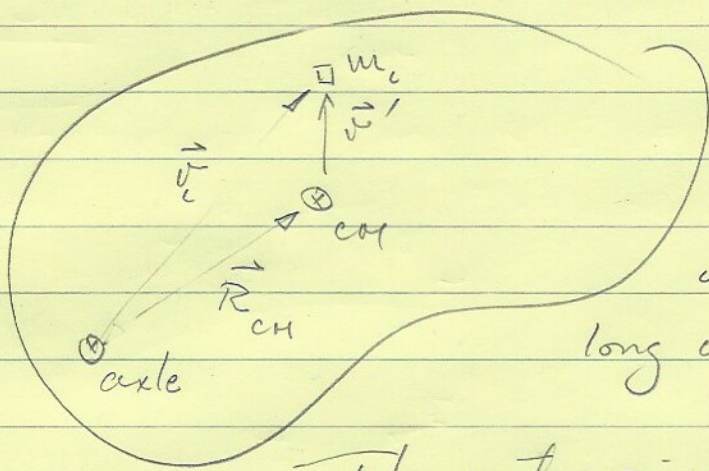 mᵢ
r⃗ '
r⃗ᵢ
CM
R⃗
CM
axle
long